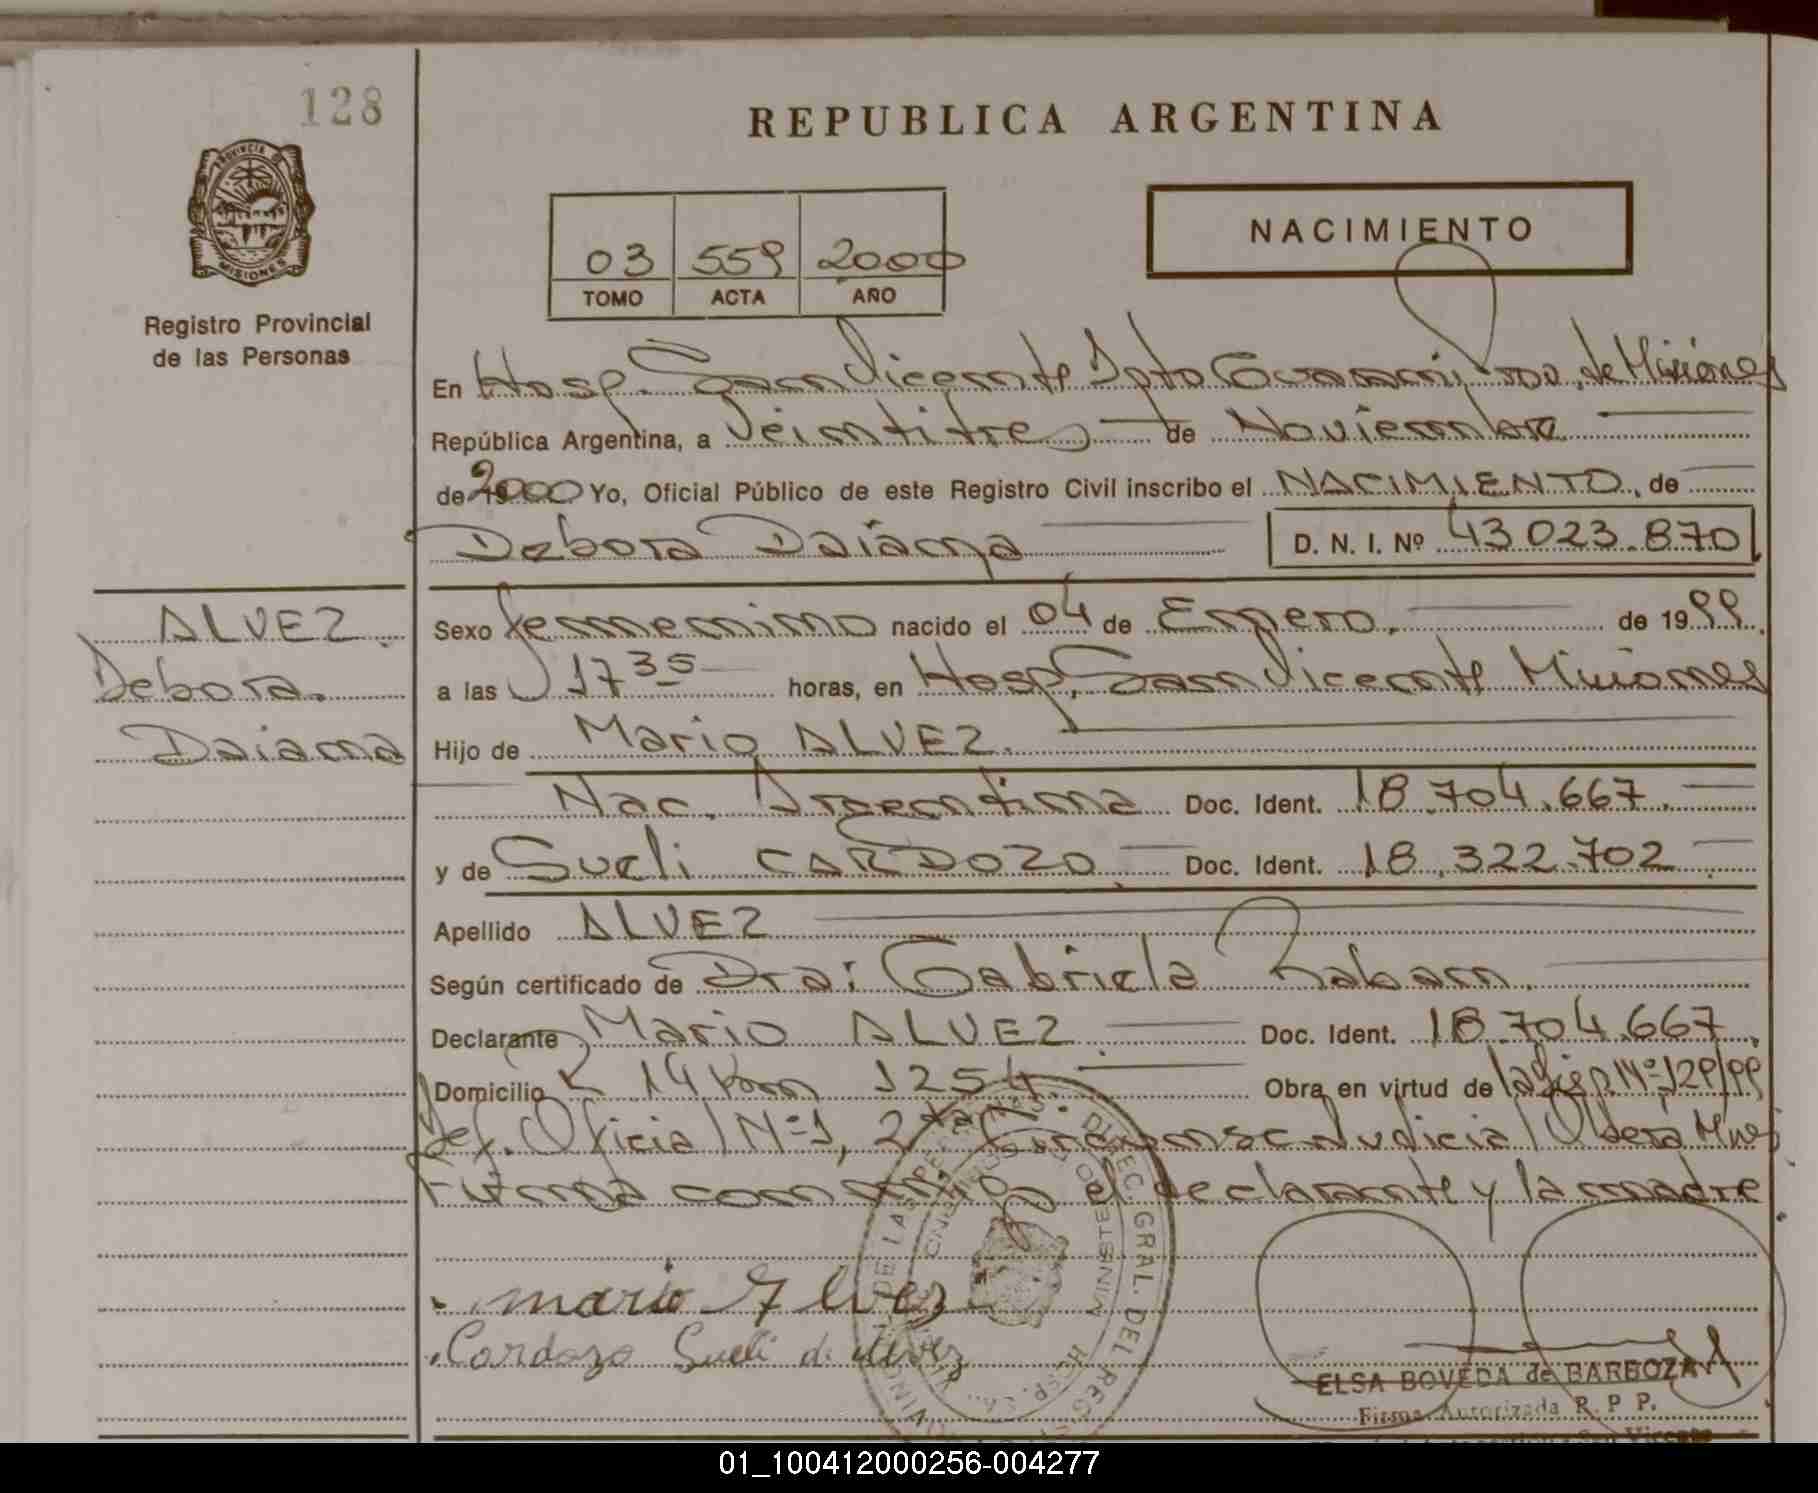 128
REPUBLICA ARGENTINA
PROVINCIA DE
MISIONES
Registro Provincial
de las Personas
03 559 2000
TOMO ACTA AÑO
NACIMIENTO
En Hosp. San Vicente Dpto Guarani, de Misiones
República Argentina, a Veintitres de Noviembre
de 2000 Yo, Oficial Público de este Registro Civil inscribo el NACIMIENTO, de
Debora Daiana D. N. I. Nº 43 023.870
ALVEZ
Debora
Daiana
Sexo femenino nacido el 04 de Enero. de 1999.
a las 17 35 horas, en Hosp. San Vicente Misiones
Hijo de Mario ALVEZ.
Nac. Argentina Doc. Ident. 18.704.667.
y de Sueli CARDOZO Doc. Ident. 18.322.702
Apellido ALVEZ
Según certificado de Dra: Gabriela Raban.
Declarante Mario ALVEZ Doc. Ident. 18.704.667.
Domicilio 14 Km 1254. Obra en virtud de la Nº 129/99
Def. Oficial Nº 1, 2 da Circunsc. Judicial Obera Mnes
Firma el declarante y la madre
mario Alvez
Cardozo Sueli de Alvez
DIREC. GRAL. DEL REG.
DE LAS PERSONAS
MINISTERIO DE GOBIERNO
ELSA BOVEDA de BARBOZA
Firma Autorizada R. P. P.
San Vicente
01_100412000256-004277